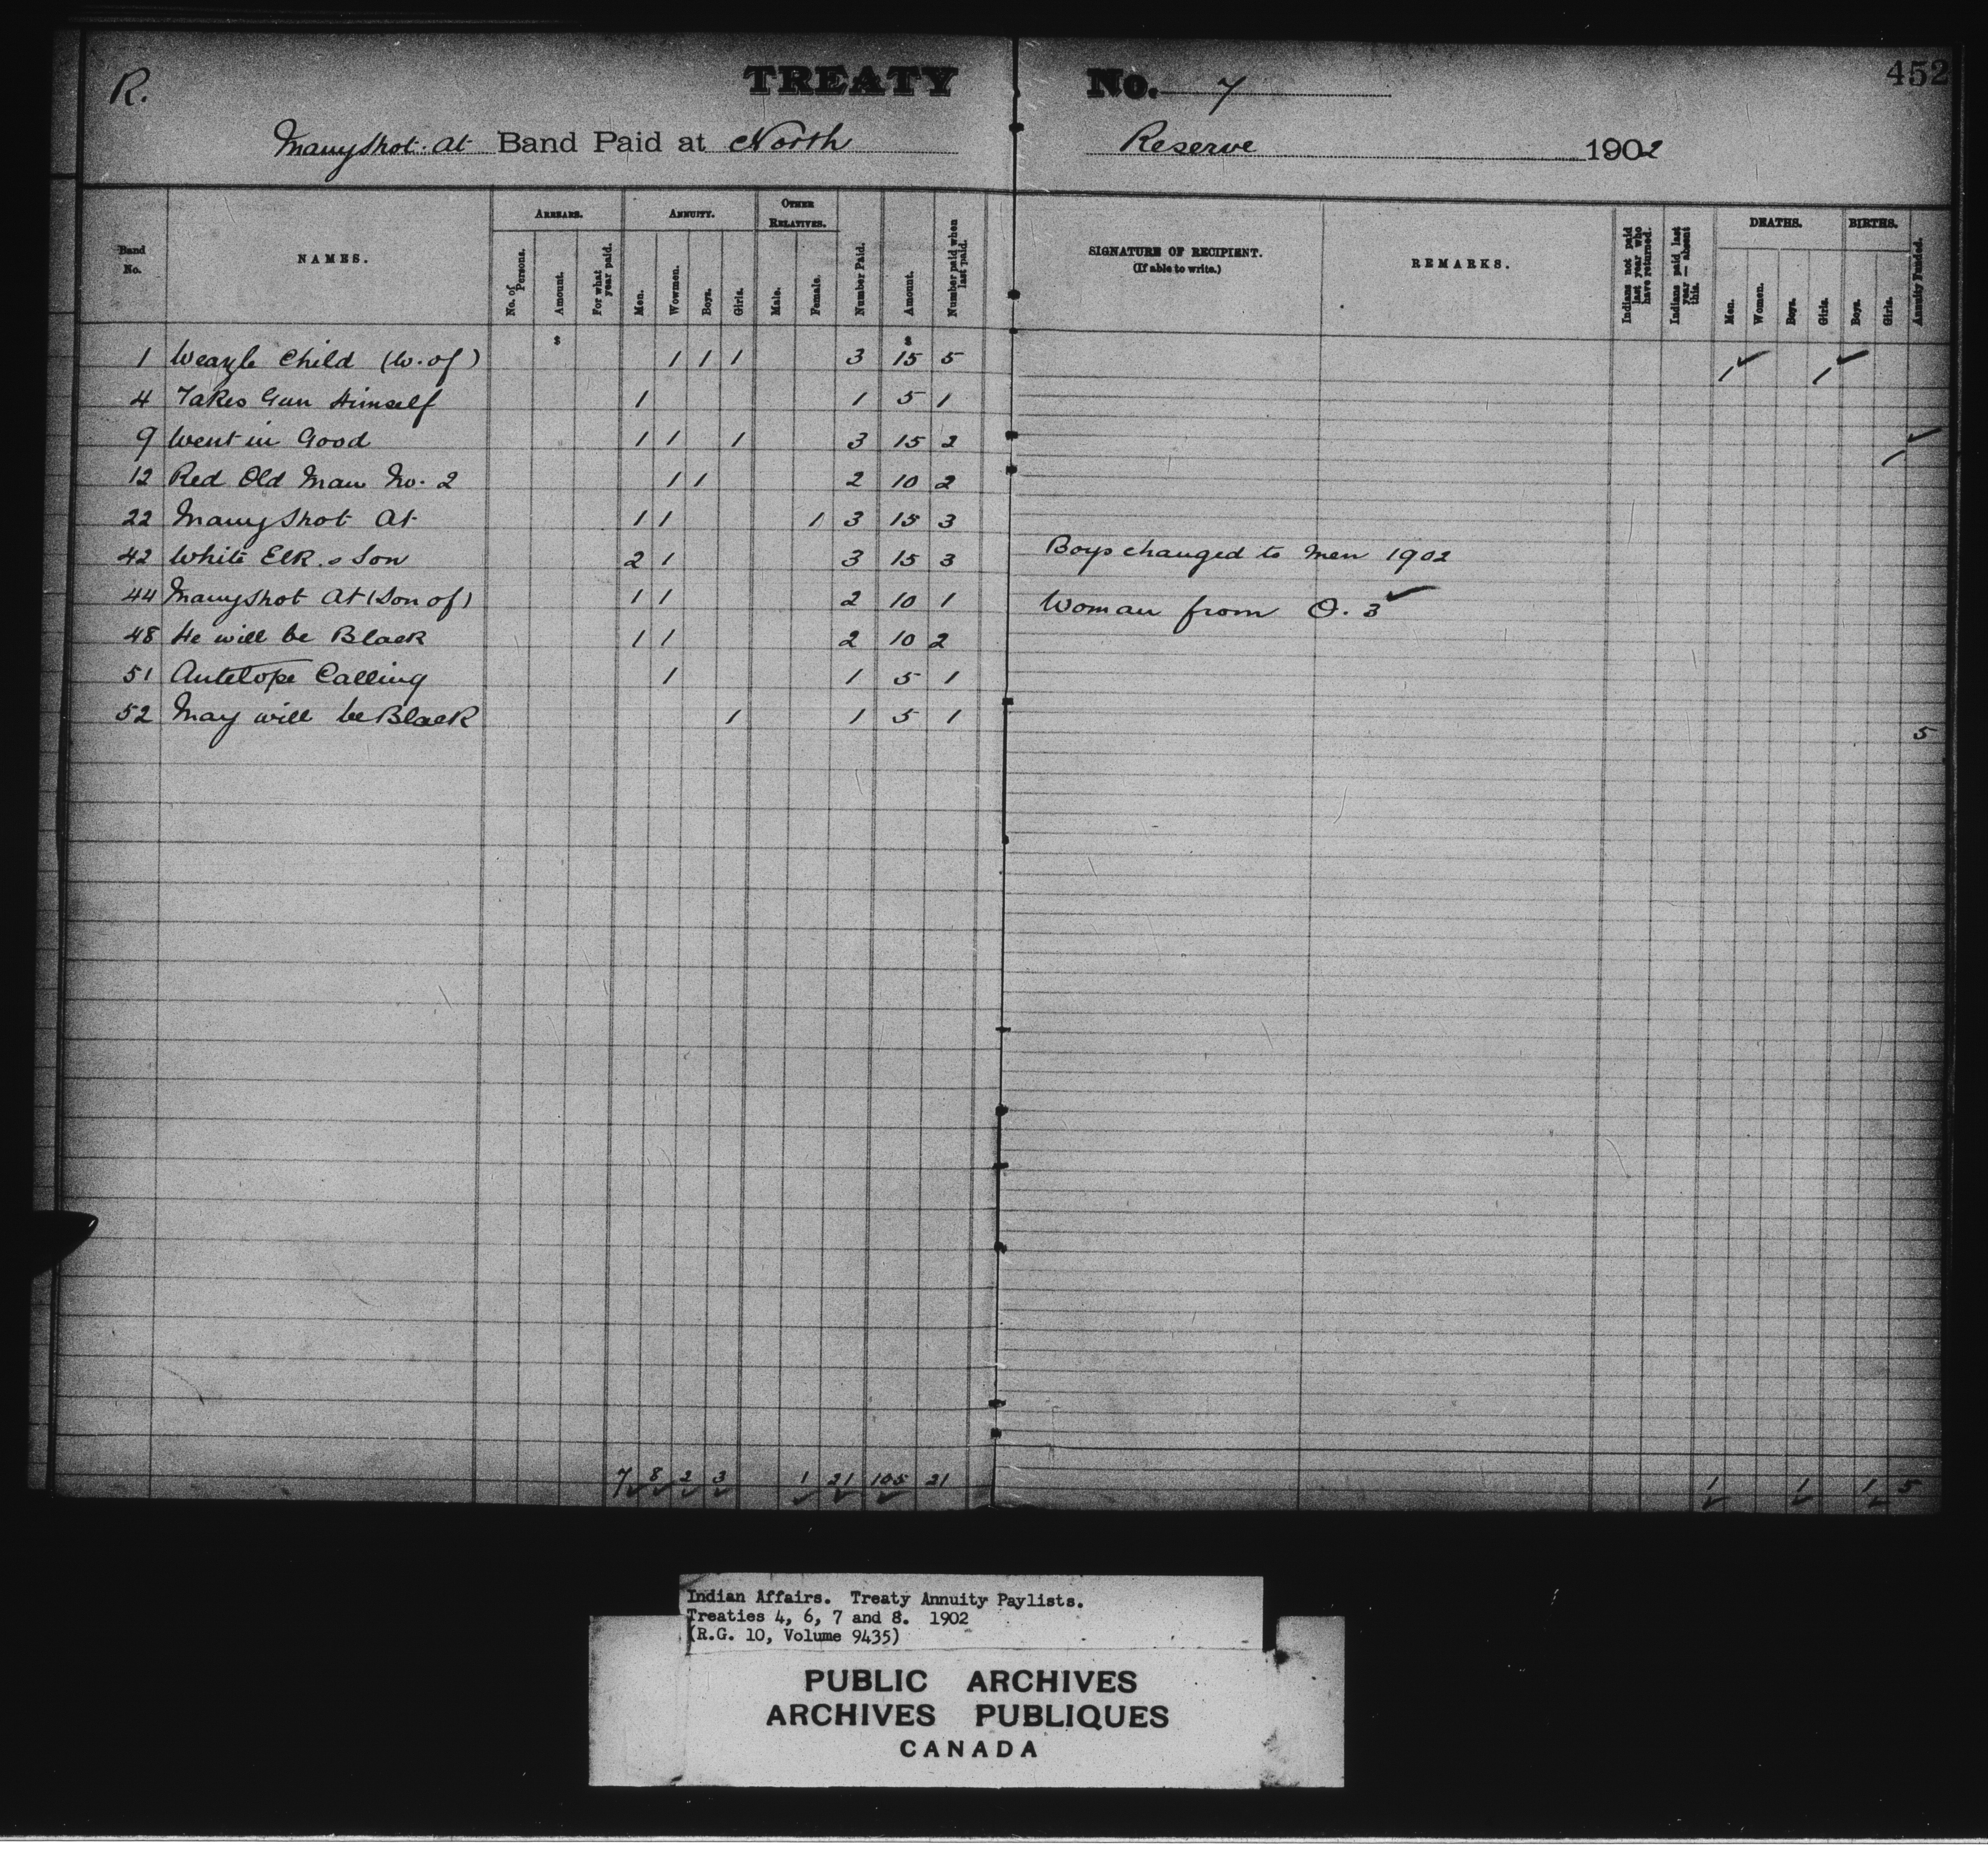 R.
TREATY No. 7
452
Manyshot At Band Paid at North Reserve 1902
Band No.
NAMES.
ARREARS.
No. of Persons.
Amount.
For what year paid.
ANNUITY.
Men.
Wowmen.
Boys.
Girls.
OTHER RELATIVES.
Male.
Female.
Number Paid.
Amount.
Number paid when last paid.
SIGNATURE OF RECIPIENT.
(If able to write.)
REMARKS.
Indians not paid last year who have returned.
Indians paid last year — absent this.
DEATHS.
Men.
Women.
Boys.
Girls.
BIRTHS.
Boys.
Girls.
Annuity Funded.
$ $
1 Weazle Child (W. of) 1 1 1 3 15 5 1 ✓ 1 ✓
4 Takes Gun Himself 1 1 5 1
9 Went in Good 1 1 1 3 15 2 1 ✓
12 Red Old Man No. 2 1 1 2 10 2
22 Many Shot At 1 1 1 3 15 3
42 White Elk s Son 2 1 3 15 3 Boys changed to Men 1902
44 Manyshot At (Son of) 1 1 2 10 1 Woman from O. 3 ✓
48 He will be Black 1 1 2 10 2
51 Antelope Calling 1 1 5 1
52 May will be Black 1 1 5 1 5
7 8 2 3 1 21 105 21 1 1 1 5
Indian Affairs. Treaty Annuity Paylists.
Treaties 4, 6, 7 and 8. 1902
(R.G. 10, Volume 9435)
PUBLIC ARCHIVES
ARCHIVES PUBLIQUES
CANADA